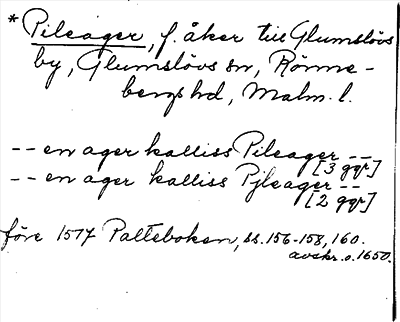 *Pileager, f. åker till Glumslövs
by, Glumslövs sn, Rönne-
bergs hd, Malm. l.
-- en ager kalliss Pileager --
[3 ggr]
-- en ager kalliss Pjleager --
[2 ggr]
före 1577 Palteboken, ss. 156-158, 160.
avskr. o. 1650.